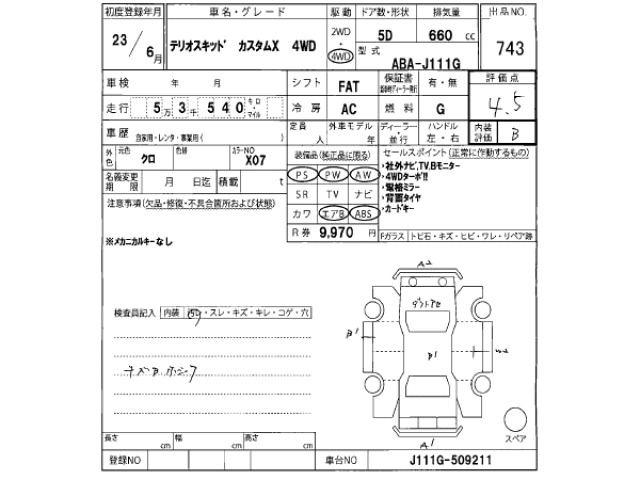 初度登録年月 車名・グレード 駆動 ドア数・形状 排気量 出品NO.
23/6月 テリオスキッド カスタムX 4WD 2WD・4WD 5D 660 cc 743
型式 ABA-J111G
車検 年 月 シフト FAT 保証書 有・無 評価点 4.5
走行 5万3千540 キロ・マイル 冷房 AC 燃料 G
車歴 自家用・レンタ・事業用( ) 定員 人 外車モデル 年 ディーラー・並行 ハンドル 左・右 内装評価 B
外色 元色 クロ 色替 カラーNO X07 装備品(純正品に限る) セールスポイント(正常に作動するもの)
名義変更期限 月 日迄 積載 t PS PW AW
・社外ナビ,TV,Bモニター
・4WDターボ!!
・電格ミラー
・背面タイヤ
・カードキー
SR TV ナビ
注意事項(欠品・修復・不具合箇所および状態) カワ エアB ABS
R券 9,970 円 Fガラス トビ石・キズ・ヒビ・ワレ・リペア跡
※メカニカルキーなし
A2
検査員記入 内装 ・スレ・キズ・キレ・コゲ・穴
B1 B1
A1
スペア
長さ cm 幅 cm 高さ cm
登録NO 車台NO J111G-509211